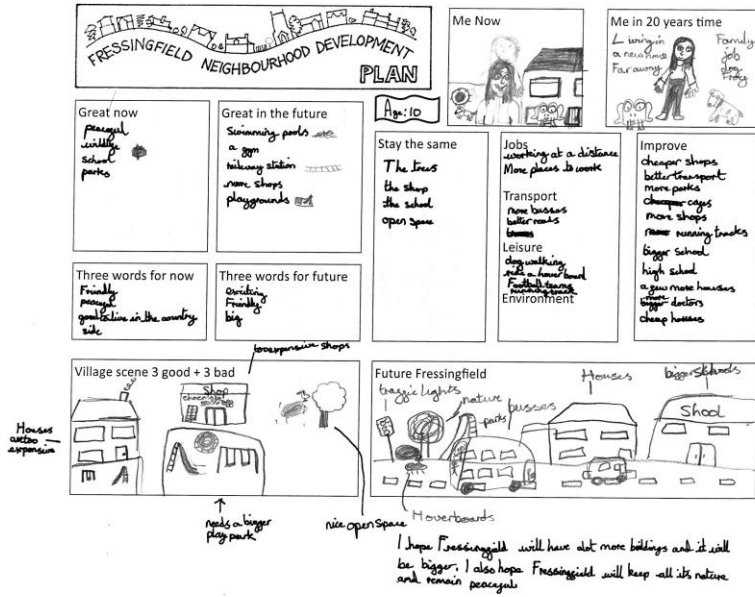 FRESSINGFIELD NEIGHBOURHOOD DEVELOPMENT
PLAN
Age: 10
Me Now
Me in 20 years time
Living in
a new house
Far away
Family
job
dog
Frog
Great now
peaceful
wildlife
School
parks
Great in the future
Swimming pools
a gym
railway station
more shops
playgrounds
Stay the same
The trees
the shop
the school
open space
Jobs
working at a distance
More places to work
Transport
more busses
better roads
Leisure
dog walking
ride a hover board
Football teams
running track
Environment
Improve
cheaper shops
better transport
more parks
cheaper cages
more shops
more running tracks
bigger school
high school
a few more housses
more
bigger doctors
cheap housses
Three words for now
Friendly
peaceful
good to live in the country
side
Three words for future
exciting
Friendly
big
to expensive shops
Village scene 3 good + 3 bad
Shop
Houses
are too
expensive
needs a bigger
play park
nice open space
Future Fressingfield
traffic lights
nature
parks
busses
Houses
bigger Schools
Shool
Hoverboards
I hope Fressingfield will have alot more buildings and it will
be bigger. I also hope Fressingfield will keep all its nature
and remain peaceful